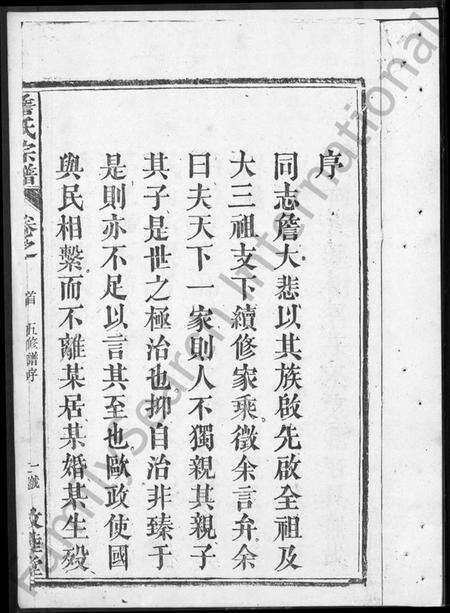 序
同志詹大悲以其族啟先啟全祖及
大三祖支下續修家乘徵余言弁余
曰夫天下一家則人不獨親其親子
其子是世之極治也抑自治非臻于
是則亦不足以言其至也歐政使國
與民相繫而不離某居某婚某生殁
詹氏宗譜
卷之一
首 五修譜序
FamilySearch International